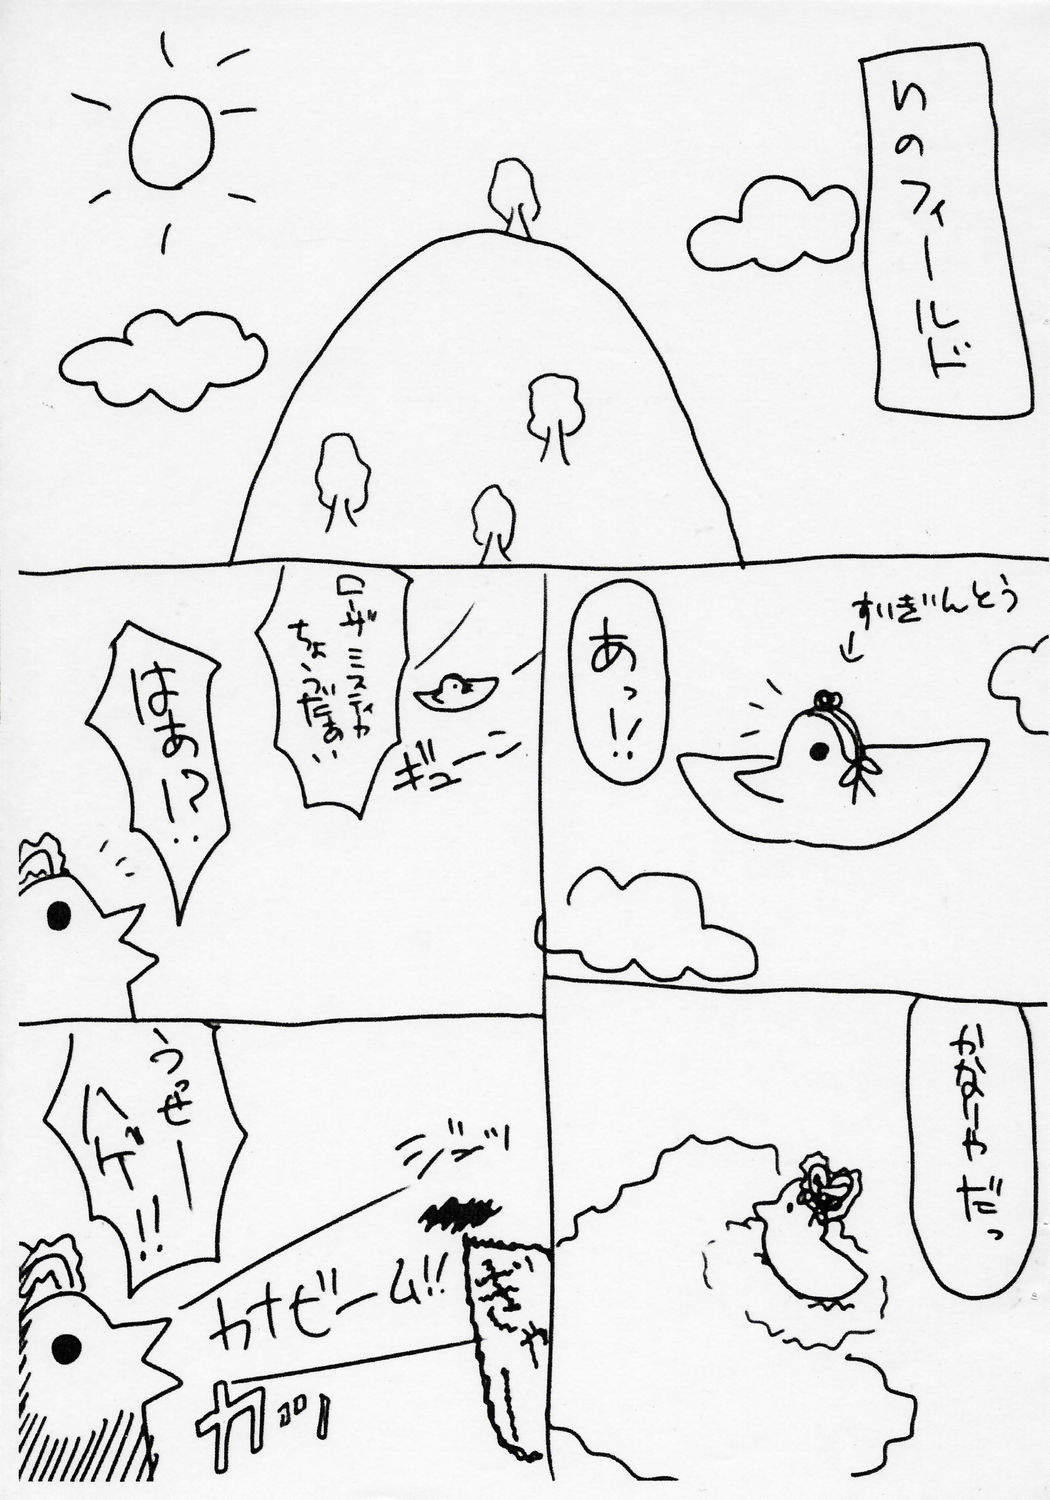 nのフィールド
すいぎんとう
あっ!!
かなりやだっ
ローザミスティカ
ちょうだぁい
はぁ!?
ギューン
うっぜー
ハゲ!!
ジジッ
カナビーム!!
ぎゃー
カッ